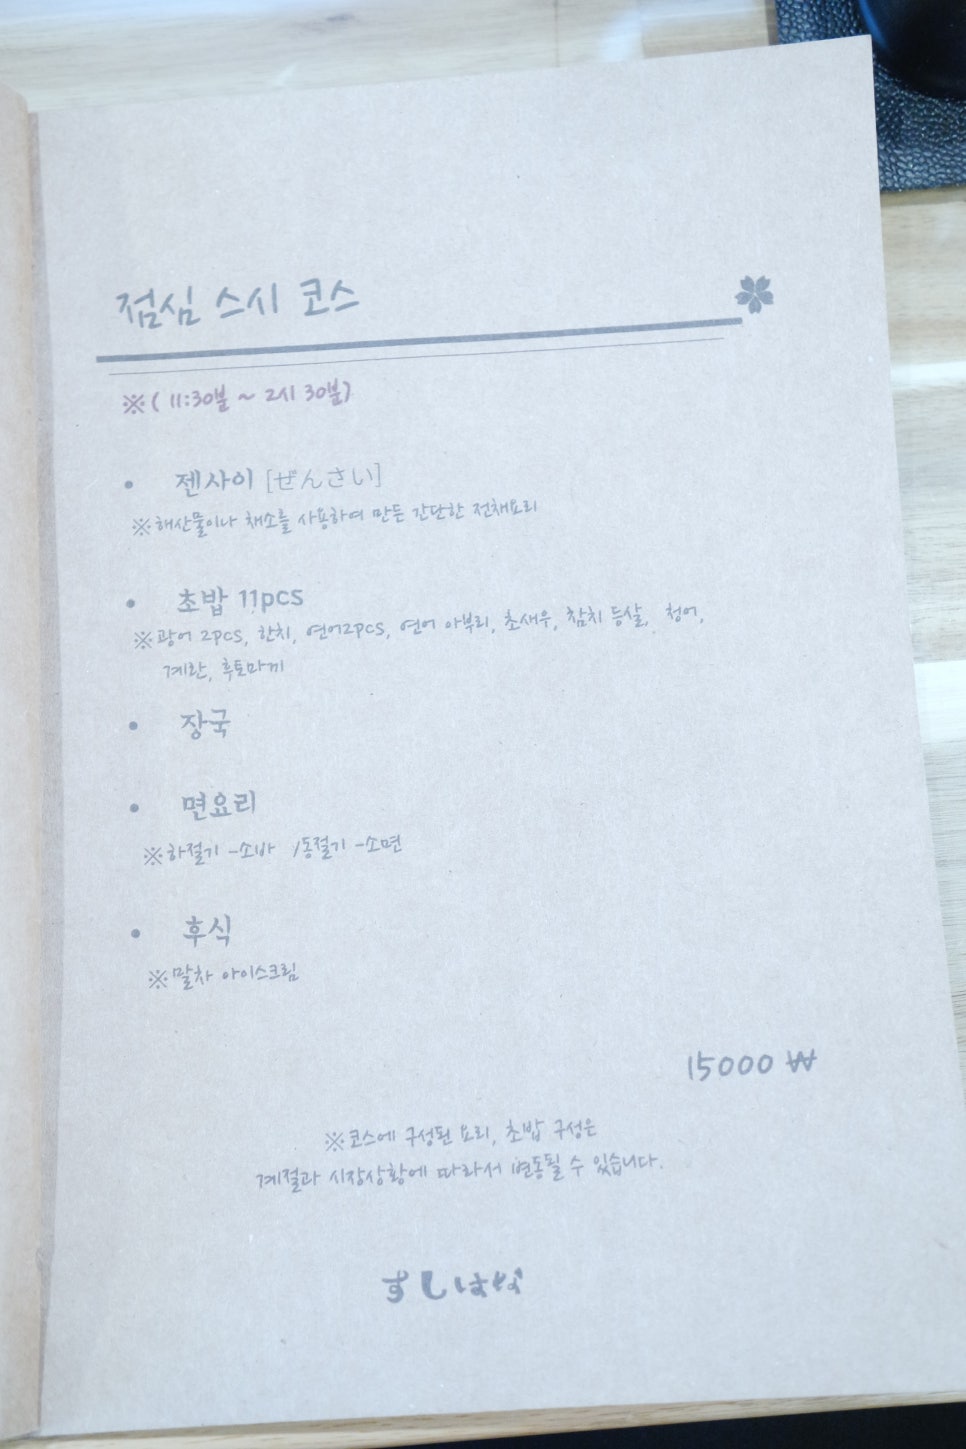 점심 스시 코스
※( 11:30분 ~ 2시 30분)
• 젠사이 [ぜんさい]
※해산물이나 채소를 사용하여 만든 간단한 전채요리
• 초밥 11pcs
※광어 2pcs, 한치, 연어2pcs, 연어 아부리, 초새우, 참치 등살, 청어,
계란, 후토마끼
• 장국
• 면요리
※하절기 -소바 /동절기 -소면
• 후식
※말차 아이스크림
15000 ₩
※코스에 구성된 요리, 초밥 구성은
계절과 시장상황에 따라서 변동될 수 있습니다.
すしはな